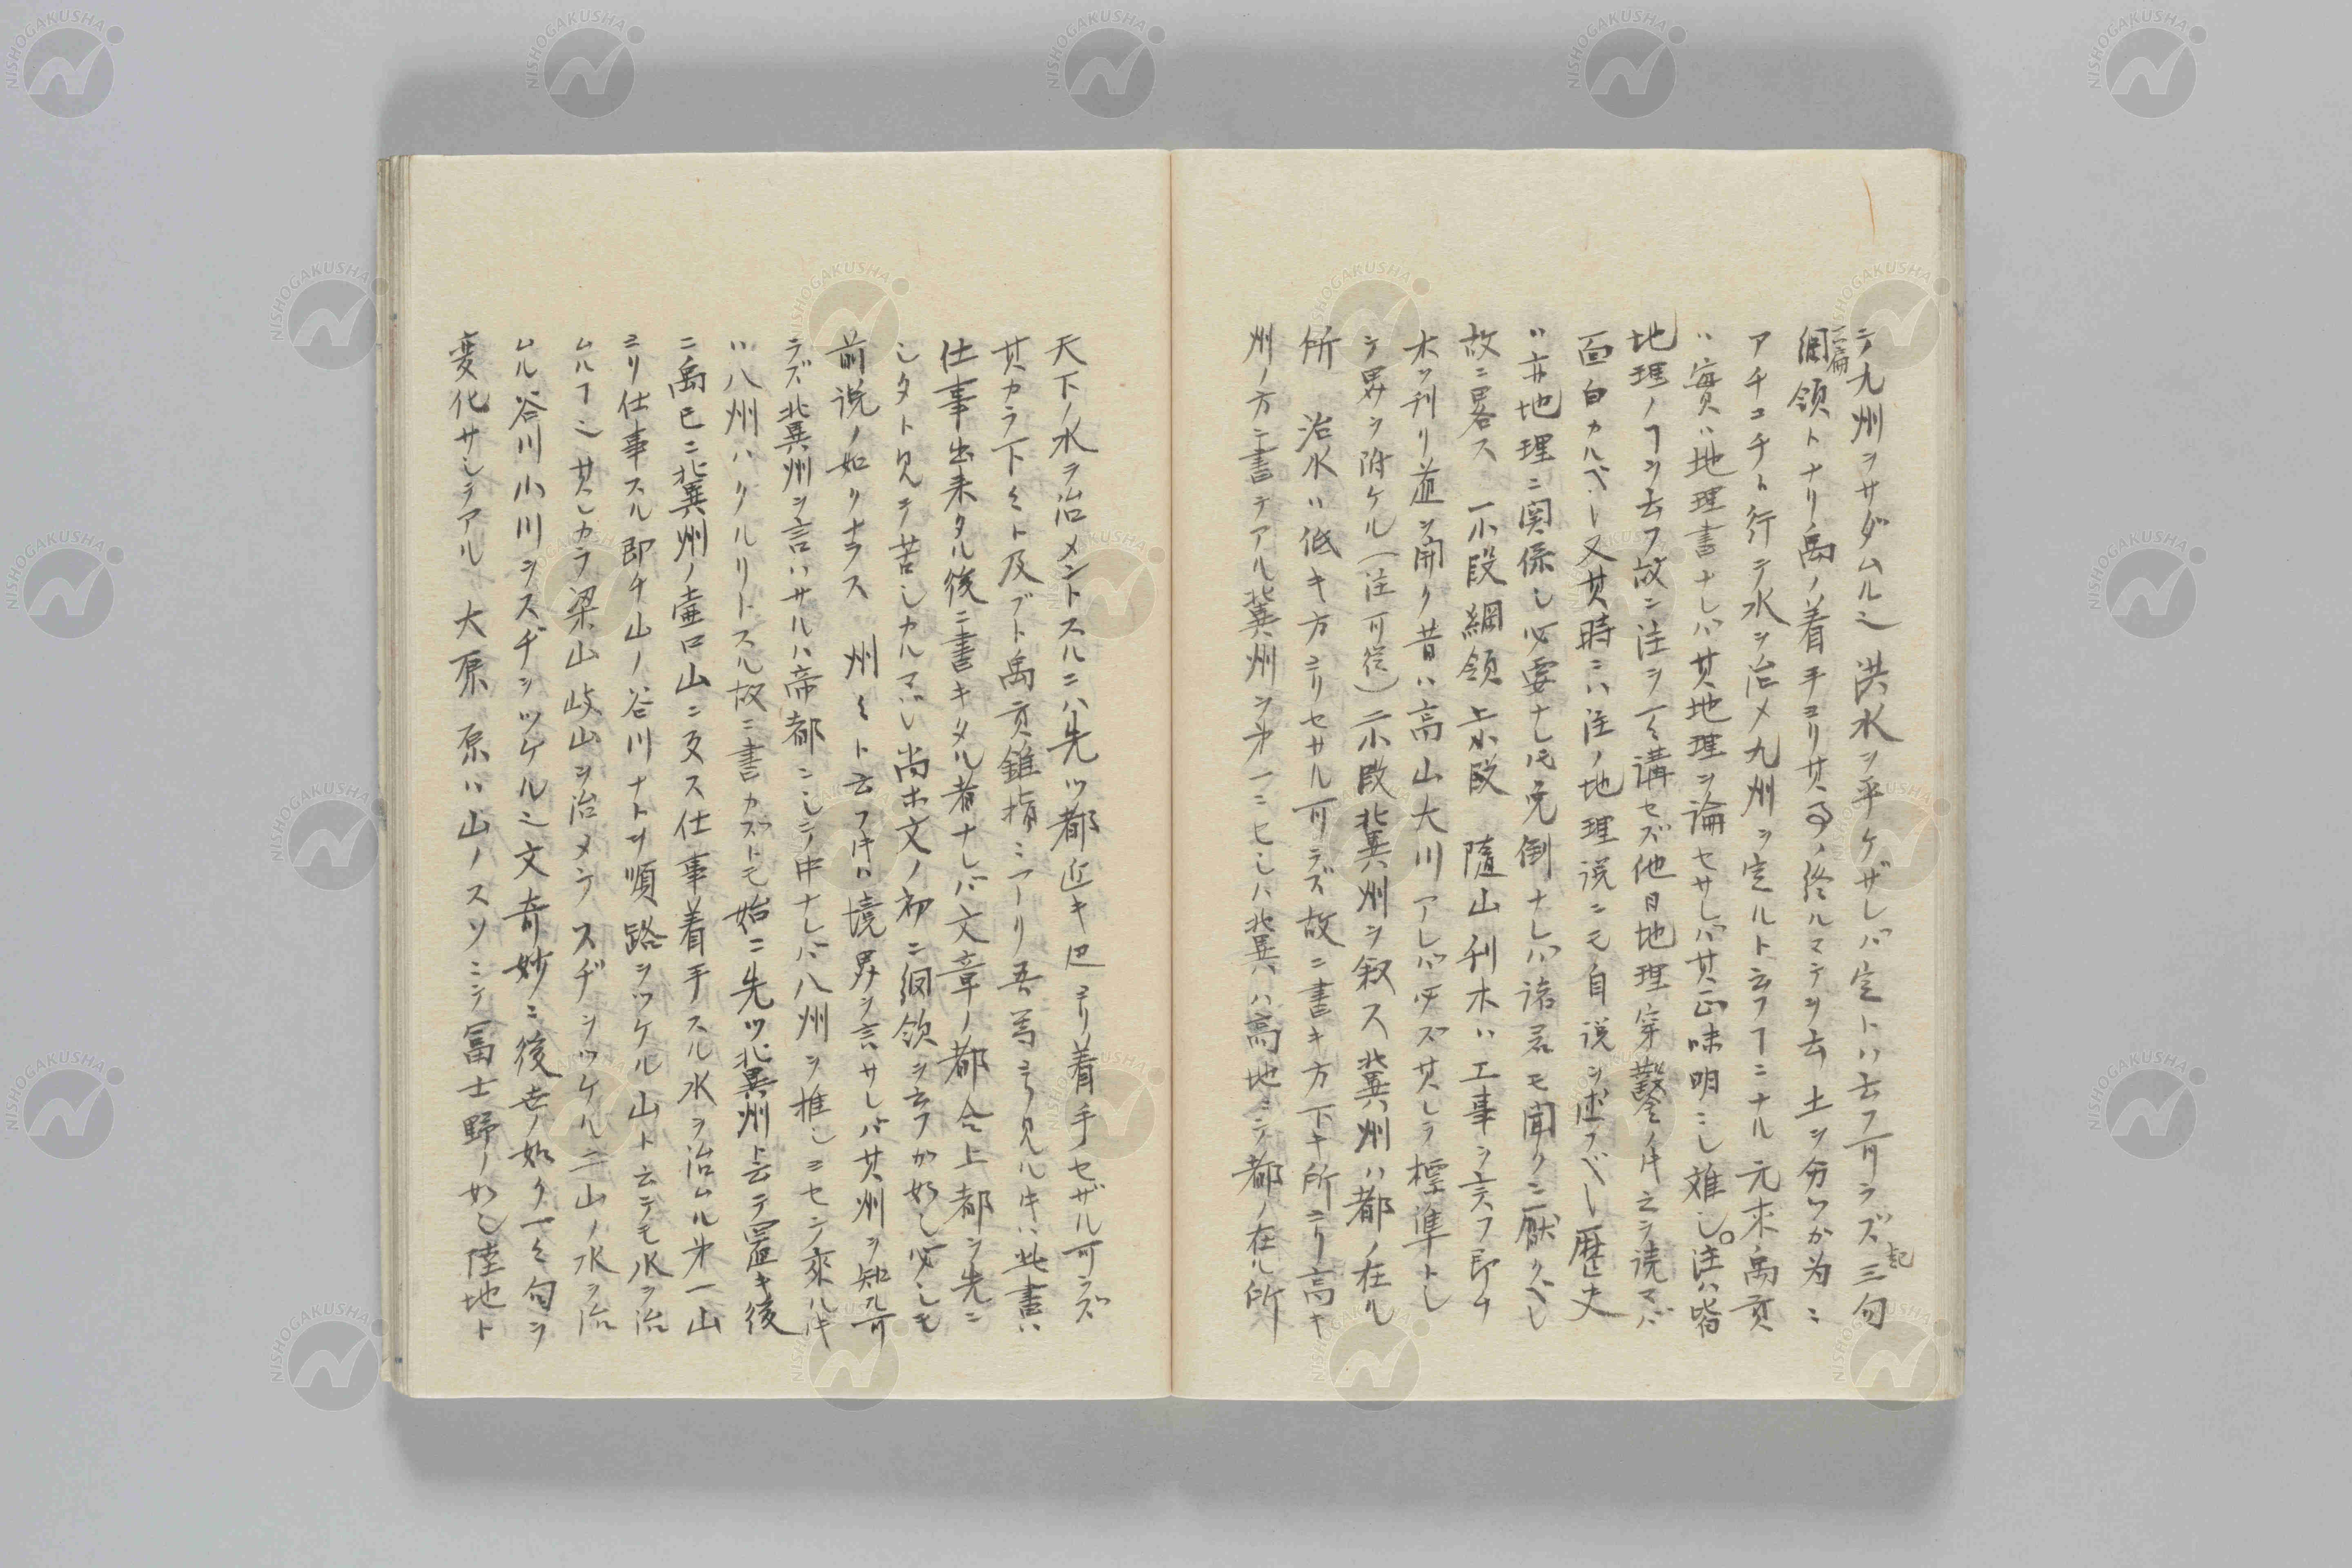 テ九州ヲサダムル也 洪水ヲ平ケザレバ定トハ云フ可ラズ 起三句
三篇
綱領トナリ禹ノ着手ヨリ其事ノ終ルマテヲ云 土ヲ分ツが為ニ
アチコチト行テ水ヲ治メ九州ヲ定ルト云フヿニナル 元来禹貢
ハ実ハ地理書ナレバ其地理ヲ論セサレバ其正味明ニシ難シ。注ハ皆
地理ノヿヲ云フ故ニ注ヲ一々講セズ他日地理穿鑿ノ時之ヲ読マバ
面白カルベシ又其時ニハ注ノ地理説ニモ自説ヲ述フベシ歴史
ハ亦地理ニ関係シ必要ナレ𪜈先倒ナレバ諸君モ聞クニ厭クベシ
故ニ畧ス 一小段綱領 上小段 隨山刊木ハ工事ヲ言フ即チ
木ヲ刊リ道ヲ開ク昔ハ高山大川アレバ必ズ其レヲ標準トシ
テ界ヲ附ケル(注可從)二小段冀州ヲ叙ス冀州ハ都ノ在ル
所 治水ハ低キ方ヨリセサル可ラズ故ニ書キ方下キ所ヨリ高キ
州ノ方ニ書テアル冀州ヲ㐧一ニセシハ冀ハ高地ニテ都ノ在ル所
天下ノ水ヲ治メントスルニハ先ツ都近キ辺ヨリ着手セザル可ラズ
其カラ下々ト及ブト禹貢錐指ニアリ吾等ヨリ見ル時ハ此書ハ
仕事出来タル後ニ書キタル者ナレバ文章ノ都合上都ヲ先ニ
シタト見テ苦シカルマジ尚ホ文ノ初ニ綱領ヲ云フが如シ必シモ
前説ノ如クナラス 州々ト云フ時ハ境界ヲ言サレバ其州ヲ知ル可
ラズ冀州ヲ言ハサルハ帝都ニシテ中ナレバ八州ヲ推シヨセテ來ル時
ハ八州ハクルリトスル故ニ書カズトモ 始ニ先ツ冀州ト云テ置キ後
ニ禹已ニ冀州ノ壷口山ニ及ス仕事着手スル水ヲ治ムル㐧一山
ヨリ仕事スル即チ山ノ谷川ナトヲ順路ヲツケル山ト云テモ水ヲ治
ムルヿ也 其レカラ梁山岐山ヲ治メテスヂヲツケル二山ノ水ヲ治
ムル谷川小川ヲスヂヲツケル也文奇妙ニ後世ノ如ク一々句ヲ
変化サシテアル 大原 原ハ山ノスソニテ冨士野ノ如シ陸地ト